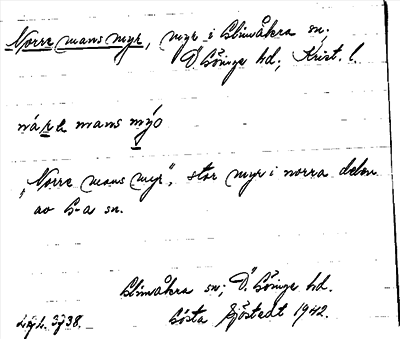 Norre mans myr, myr i Glimåkra sn;
Ö. Göinge hd; Krist. l.
nárɐ mans mýɔ
"Norre mans myr", stor myr i norra delen
av G-a sn.
Glimåkra sn; Ö. Göinge hd.
Gösta Sjöstedt 1942.
3938.